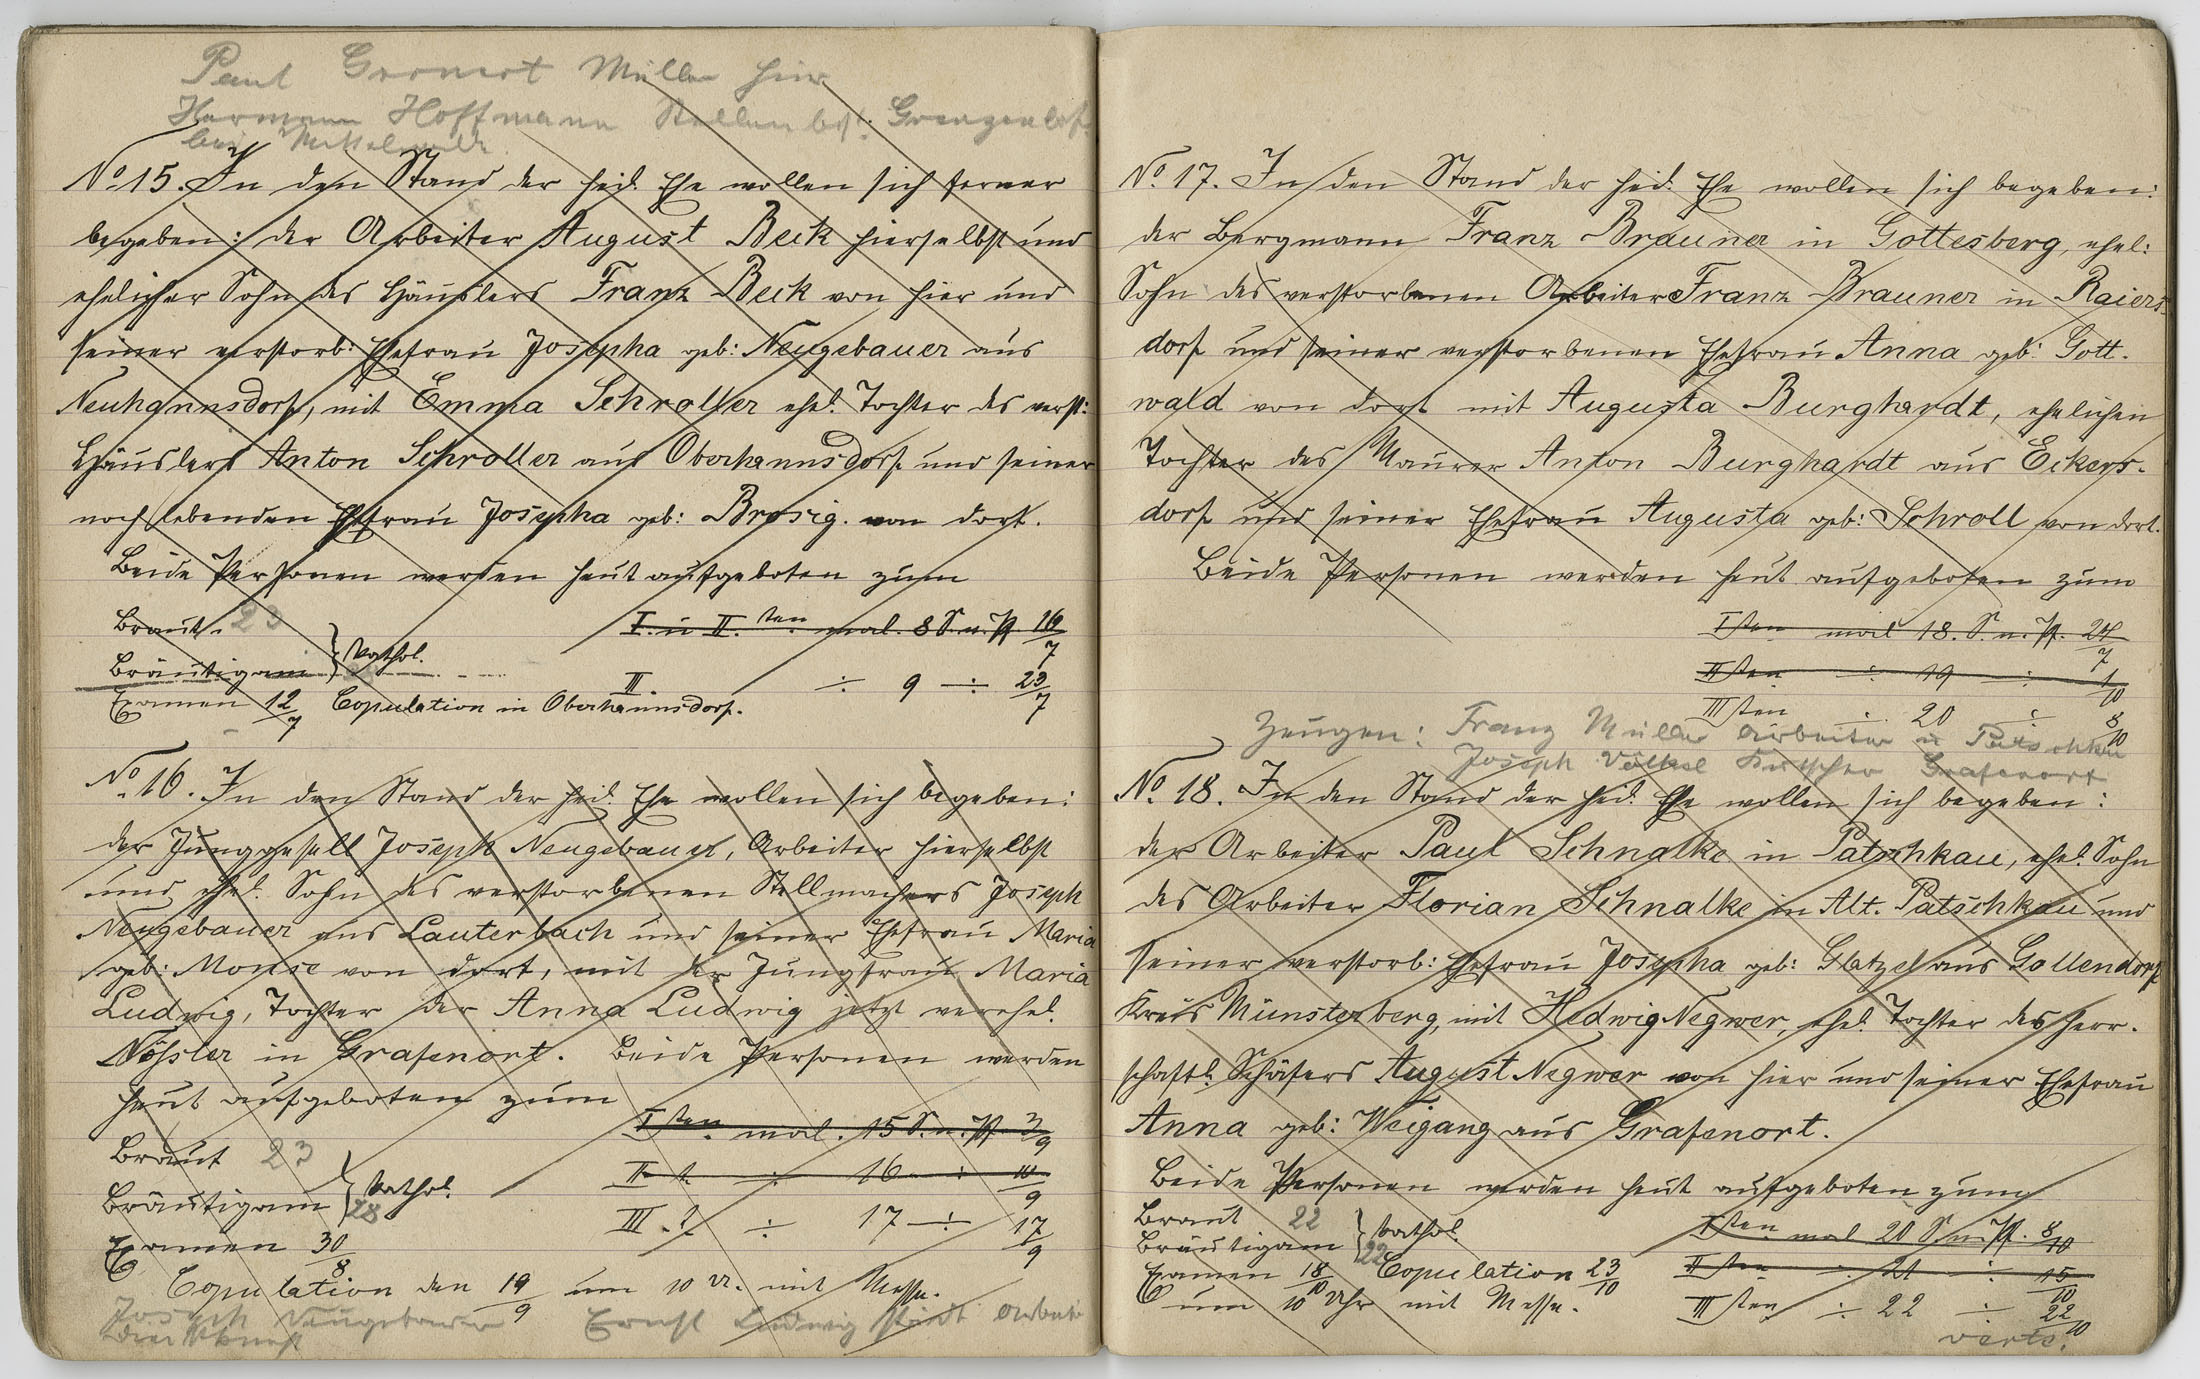 Paul Gronert Müller hier
Hermann Hoffmann Stellenbes: Grenzendorf
bei Mittelwalde.
No 15. In den Stand der heil. Ehe wollen sich ferner
begeben: der Arbeiter August Beck hierselbst und
ehelicher Sohn des Häuslers Franz Beck von hier und
seiner verstorb: Ehefrau Josepha geb: Neugebauer aus
Neuhannsdorf, mit Emma Schroller ehel. Tochter des verst:
Häuslers Anton Schroller aus Oberhannsdorf und seiner
noch lebenden Ehefrau Josepha geb: Brosig. von dort.
Beide Personen werden heut aufgeboten zum
Braut. 23
I. u II. ten mal. 8 S. n. Pf. 16/7
Bräutigam } kathol.
III. ÷ 9 ÷ 23/7
Examen 12/7 Copulation in Oberhannsdorf.
No 16. In den Stand der heil. Ehe wollen sich begeben:
der Junggesell Joseph Neugebauer, Arbeiter hierselbst
und ehel. Sohn des verstorbenen Stellmachers Joseph
Neugebauer aus Lauterbach und seiner Ehefrau Maria
geb: Monse von dort, mit der Jungfrau Maria
Ludwig, Tochter der Anna Ludwig jetzt verehel.
Nößler in Grafenort. Beide Personen werden
heut aufgeboten zum
I ten mal. 15 S. n. Pf. 3/9
Braut 23
II t. ÷ 16 ÷ 10/9
Bräutigam 28 } kathol.
III. t ÷ 17 ÷ 17/9
Examen 30/8
Copulation den 19/9 um 10 U. mit Messe.
Joseph Neugebauer Ernst Ludwig Arbeiter
No. 17. In den Stand der heil. Ehe wollen sich begeben:
der Bergmann Franz Brauner in Gottesberg, ehel:
Sohn des verstorbenen Arbeiters Franz Brauner in Raiers-
dorf und seiner verstorbenen Ehefrau Anna geb: Gott-
wald von dort mit Augusta Burghardt, ehelichen
Tochter des Maurer Anton Burghardt aus Eckers-
dorf und seiner Ehefrau Augusta geb: Schroll von dort.
Beide Personen werden heut aufgeboten zum
I sten mal 18. S. n. Pf. 24/7
II sten ÷ 19 ÷ 1/10
III sten ÷ 20 ÷ 8/10
Zeugen: Franz Müller Arbeiter in Patschkau
Joseph Völkel Kutscher Grafenort
No. 18. In den Stand der heil. Ehe wollen sich begeben:
der Arbeiter Paul Schnalke in Patschkau, ehel. Sohn
des Arbeiter Florian Schnalke in Alt. Patschkau und
seiner verstorb: Ehefrau Josepha geb: Glatzel aus Gollendorf
Kreis Münsterberg, mit Hedwig Negwer, ehel. Tochter des herr-
schaftl. Schäfers August Negwer von hier und seiner Ehefrau
Anna geb: Weigang aus Grafenort.
Beide Personen werden heut aufgeboten zum
Braut 22
I sten mal 20 S. n. Pf. 8/10
Bräutigam 22 } kathol.
II sten ÷ 21 ÷ 15/10
Examen 18/10 Copulation 23/10
um 10 Uhr mit Messe.
III sten ÷ 22 ÷ 22/10
verte.